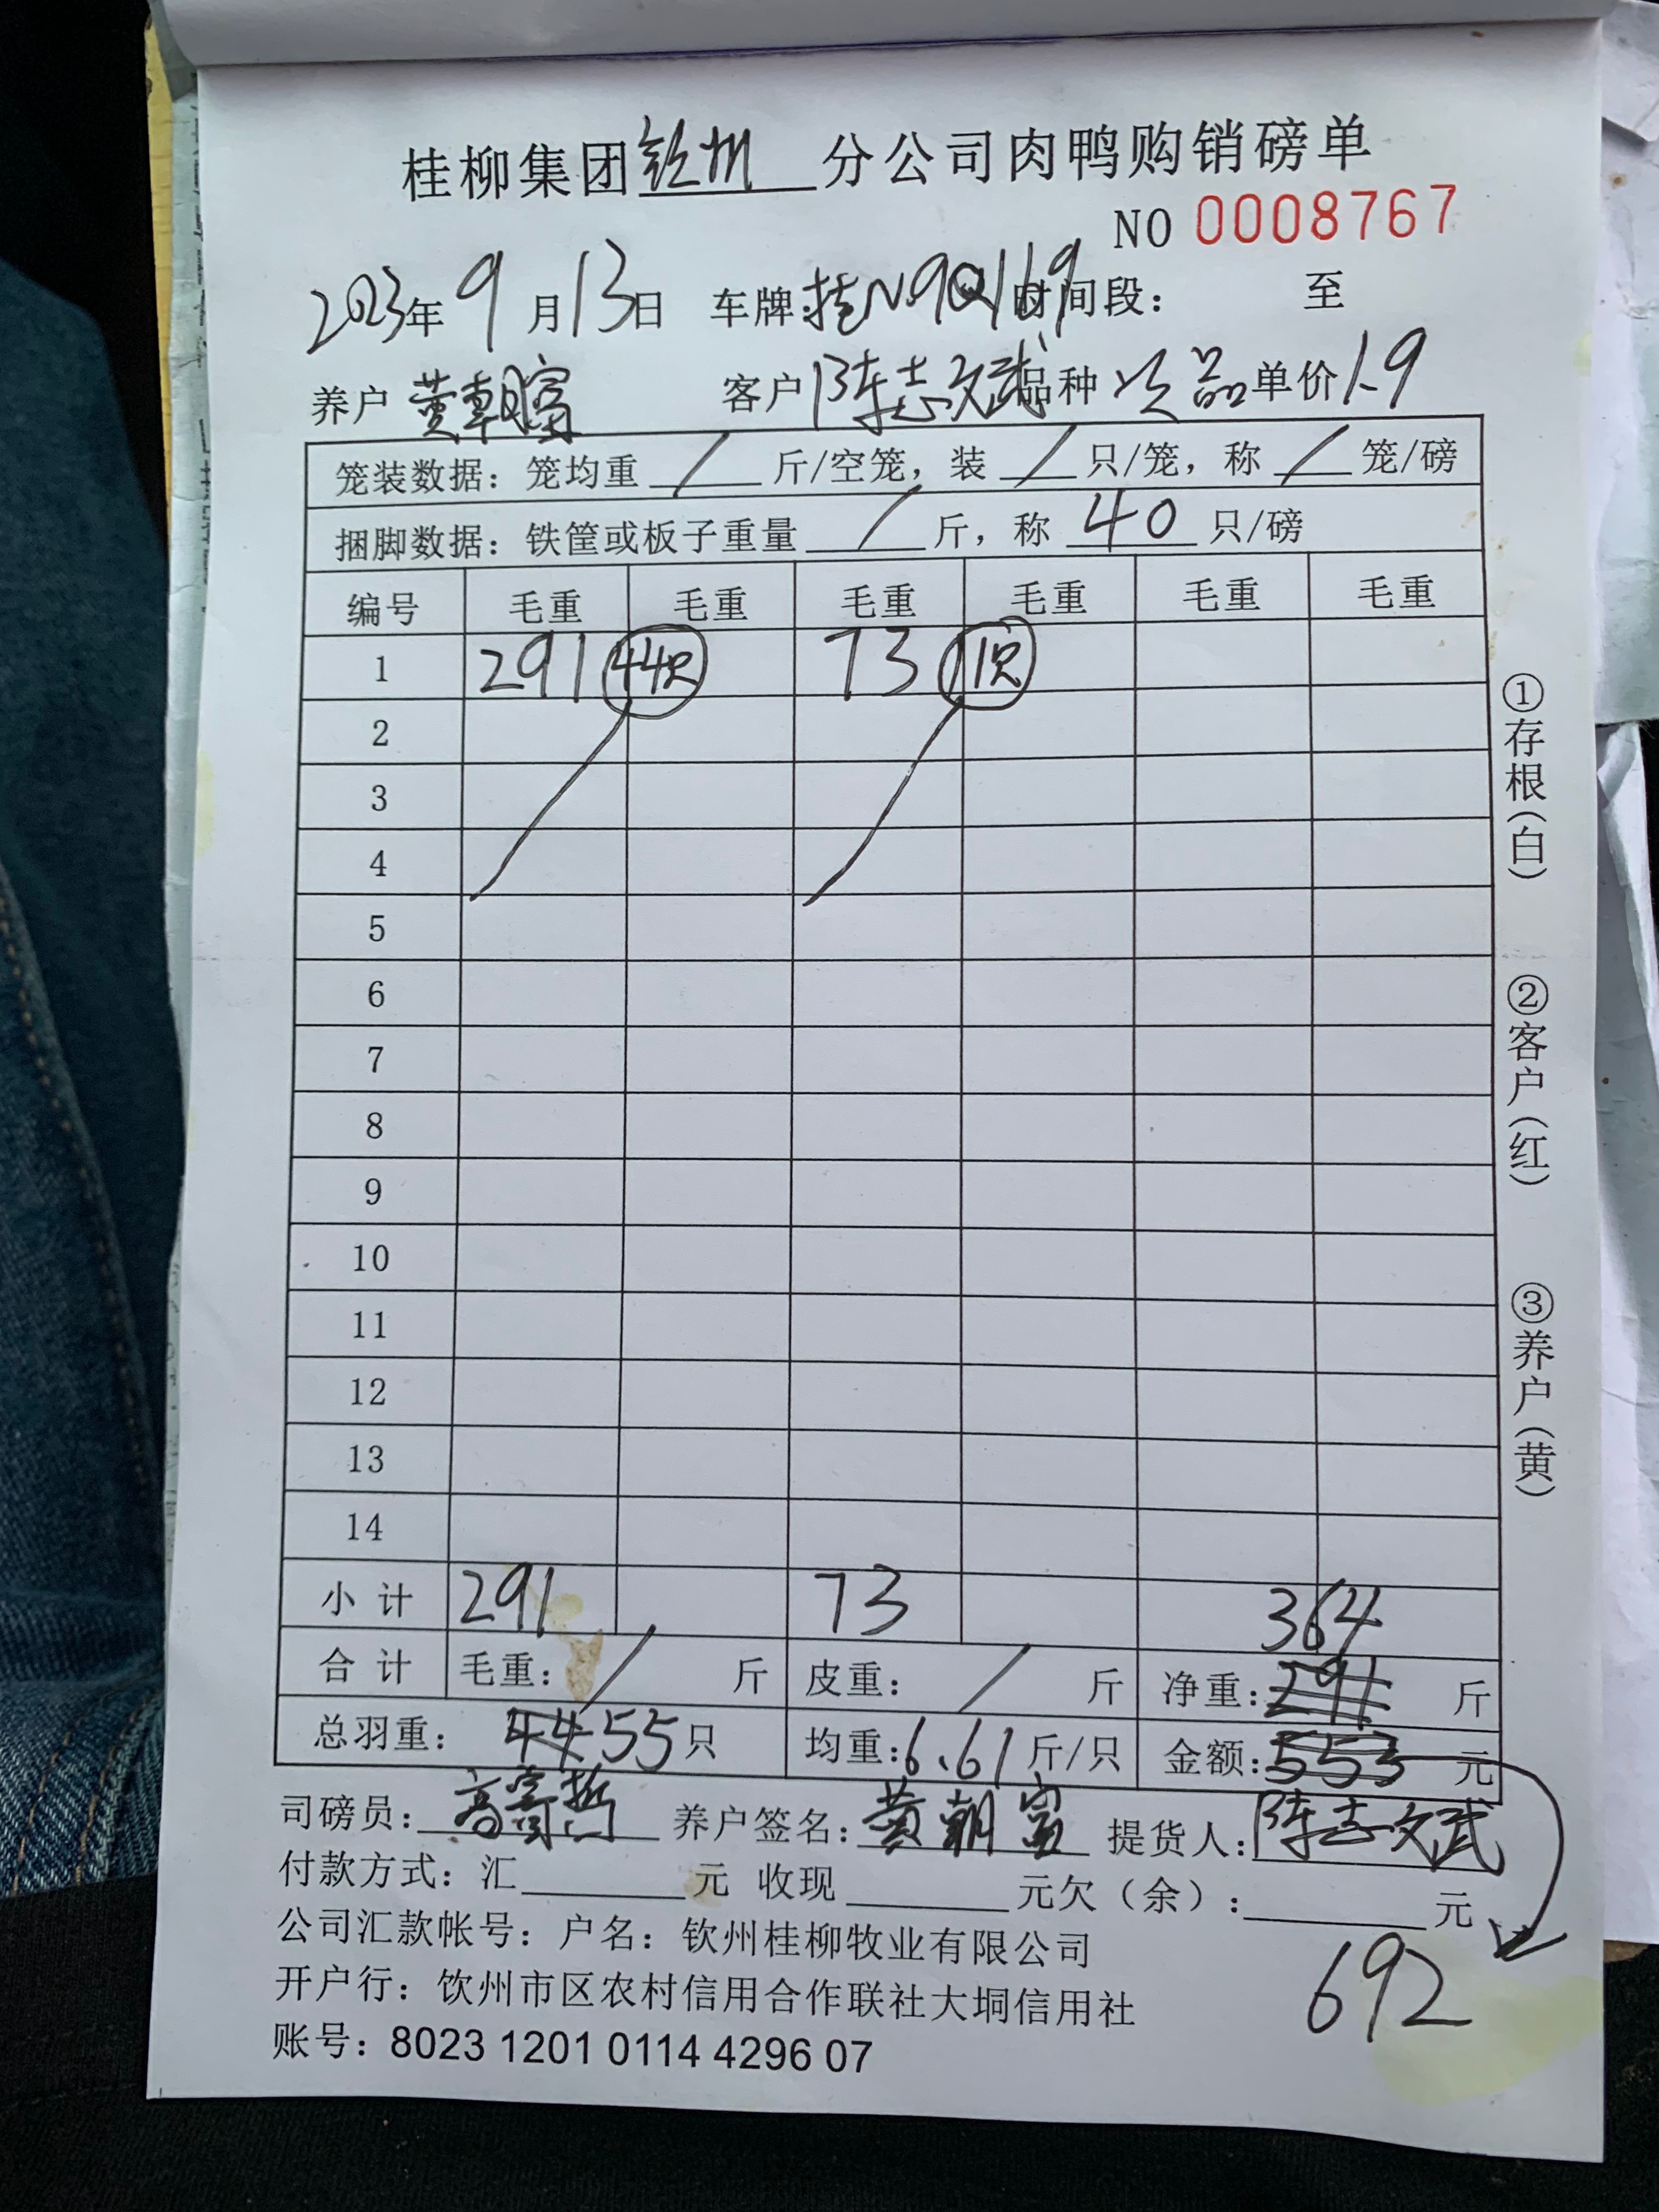 桂柳集团钦州分公司肉鸭购销磅单
NO 0008767
2023年9月13日 车牌:桂N9Q169时间段: 至
养户 黄朝富 客户 陈志文武 品种 次品 单价 1.9
笼装数据: 笼均重 / 斤/空笼, 装 / 只/笼, 称 / 笼/磅
捆脚数据: 铁筐或板子重量 / 斤, 称 40 只/磅
编号 毛重 毛重 毛重 毛重 毛重 毛重
1 291 44只 73 11只
2
3
4
5
6
7
8
9
10
11
12
13
14
小计 291 73 364
合计 毛重: / 斤 皮重: / 斤 净重: 291 斤
总羽重: 44 55只 均重: 6.61斤/只 金额: 553 元
司磅员: 养户签名: 黄朝富 提货人: 陈志文武
付款方式: 汇 元 收现 元欠(余): 元
公司汇款帐号: 户名: 钦州桂柳牧业有限公司
692
开户行: 钦州市区农村信用合作联社大垌信用社
账号: 8023 1201 0114 4296 07
①存根(白)
②客户(红)
③养户(黄)